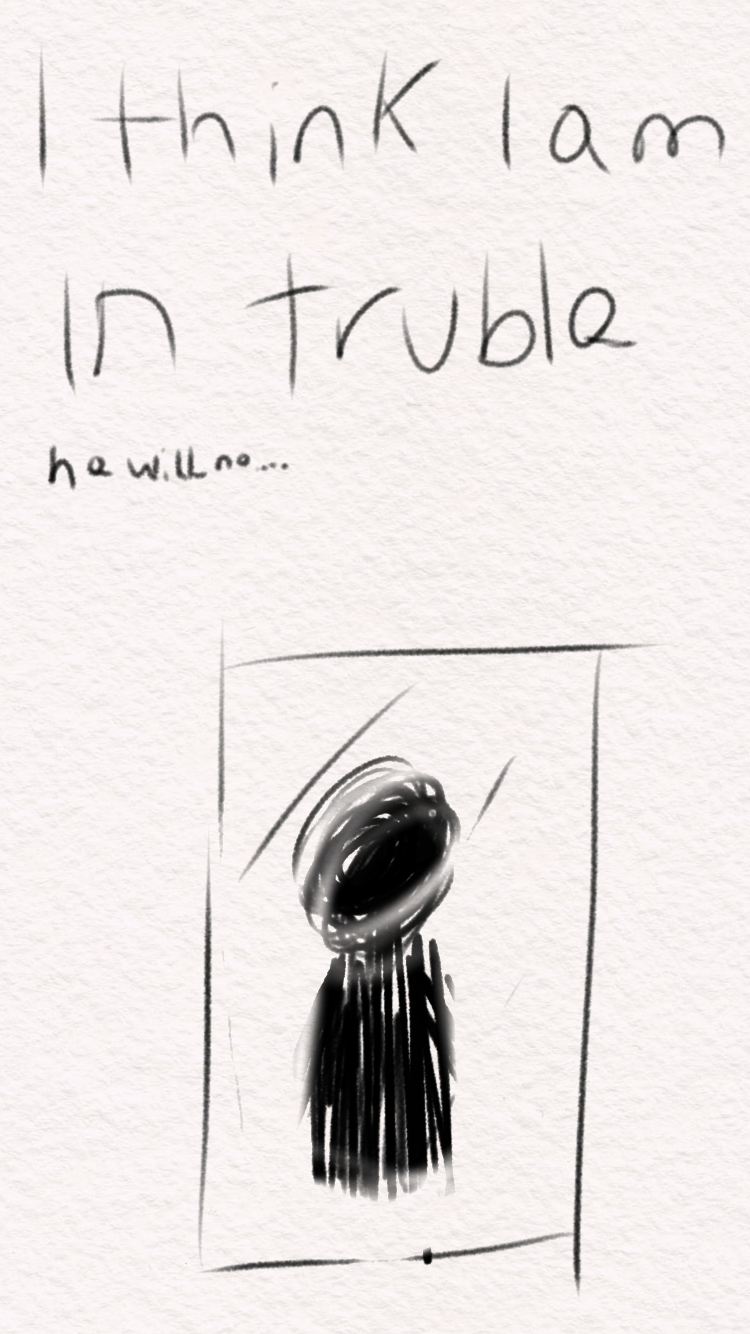 I think I am
In truble
he will no...